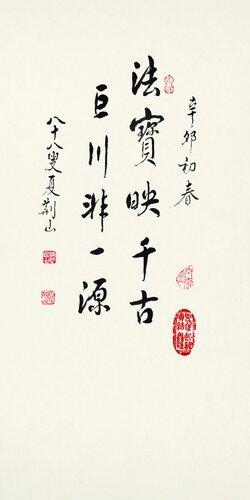 辛卯初春
法寶映千古
巨川非一源
八十八叟夏荆山